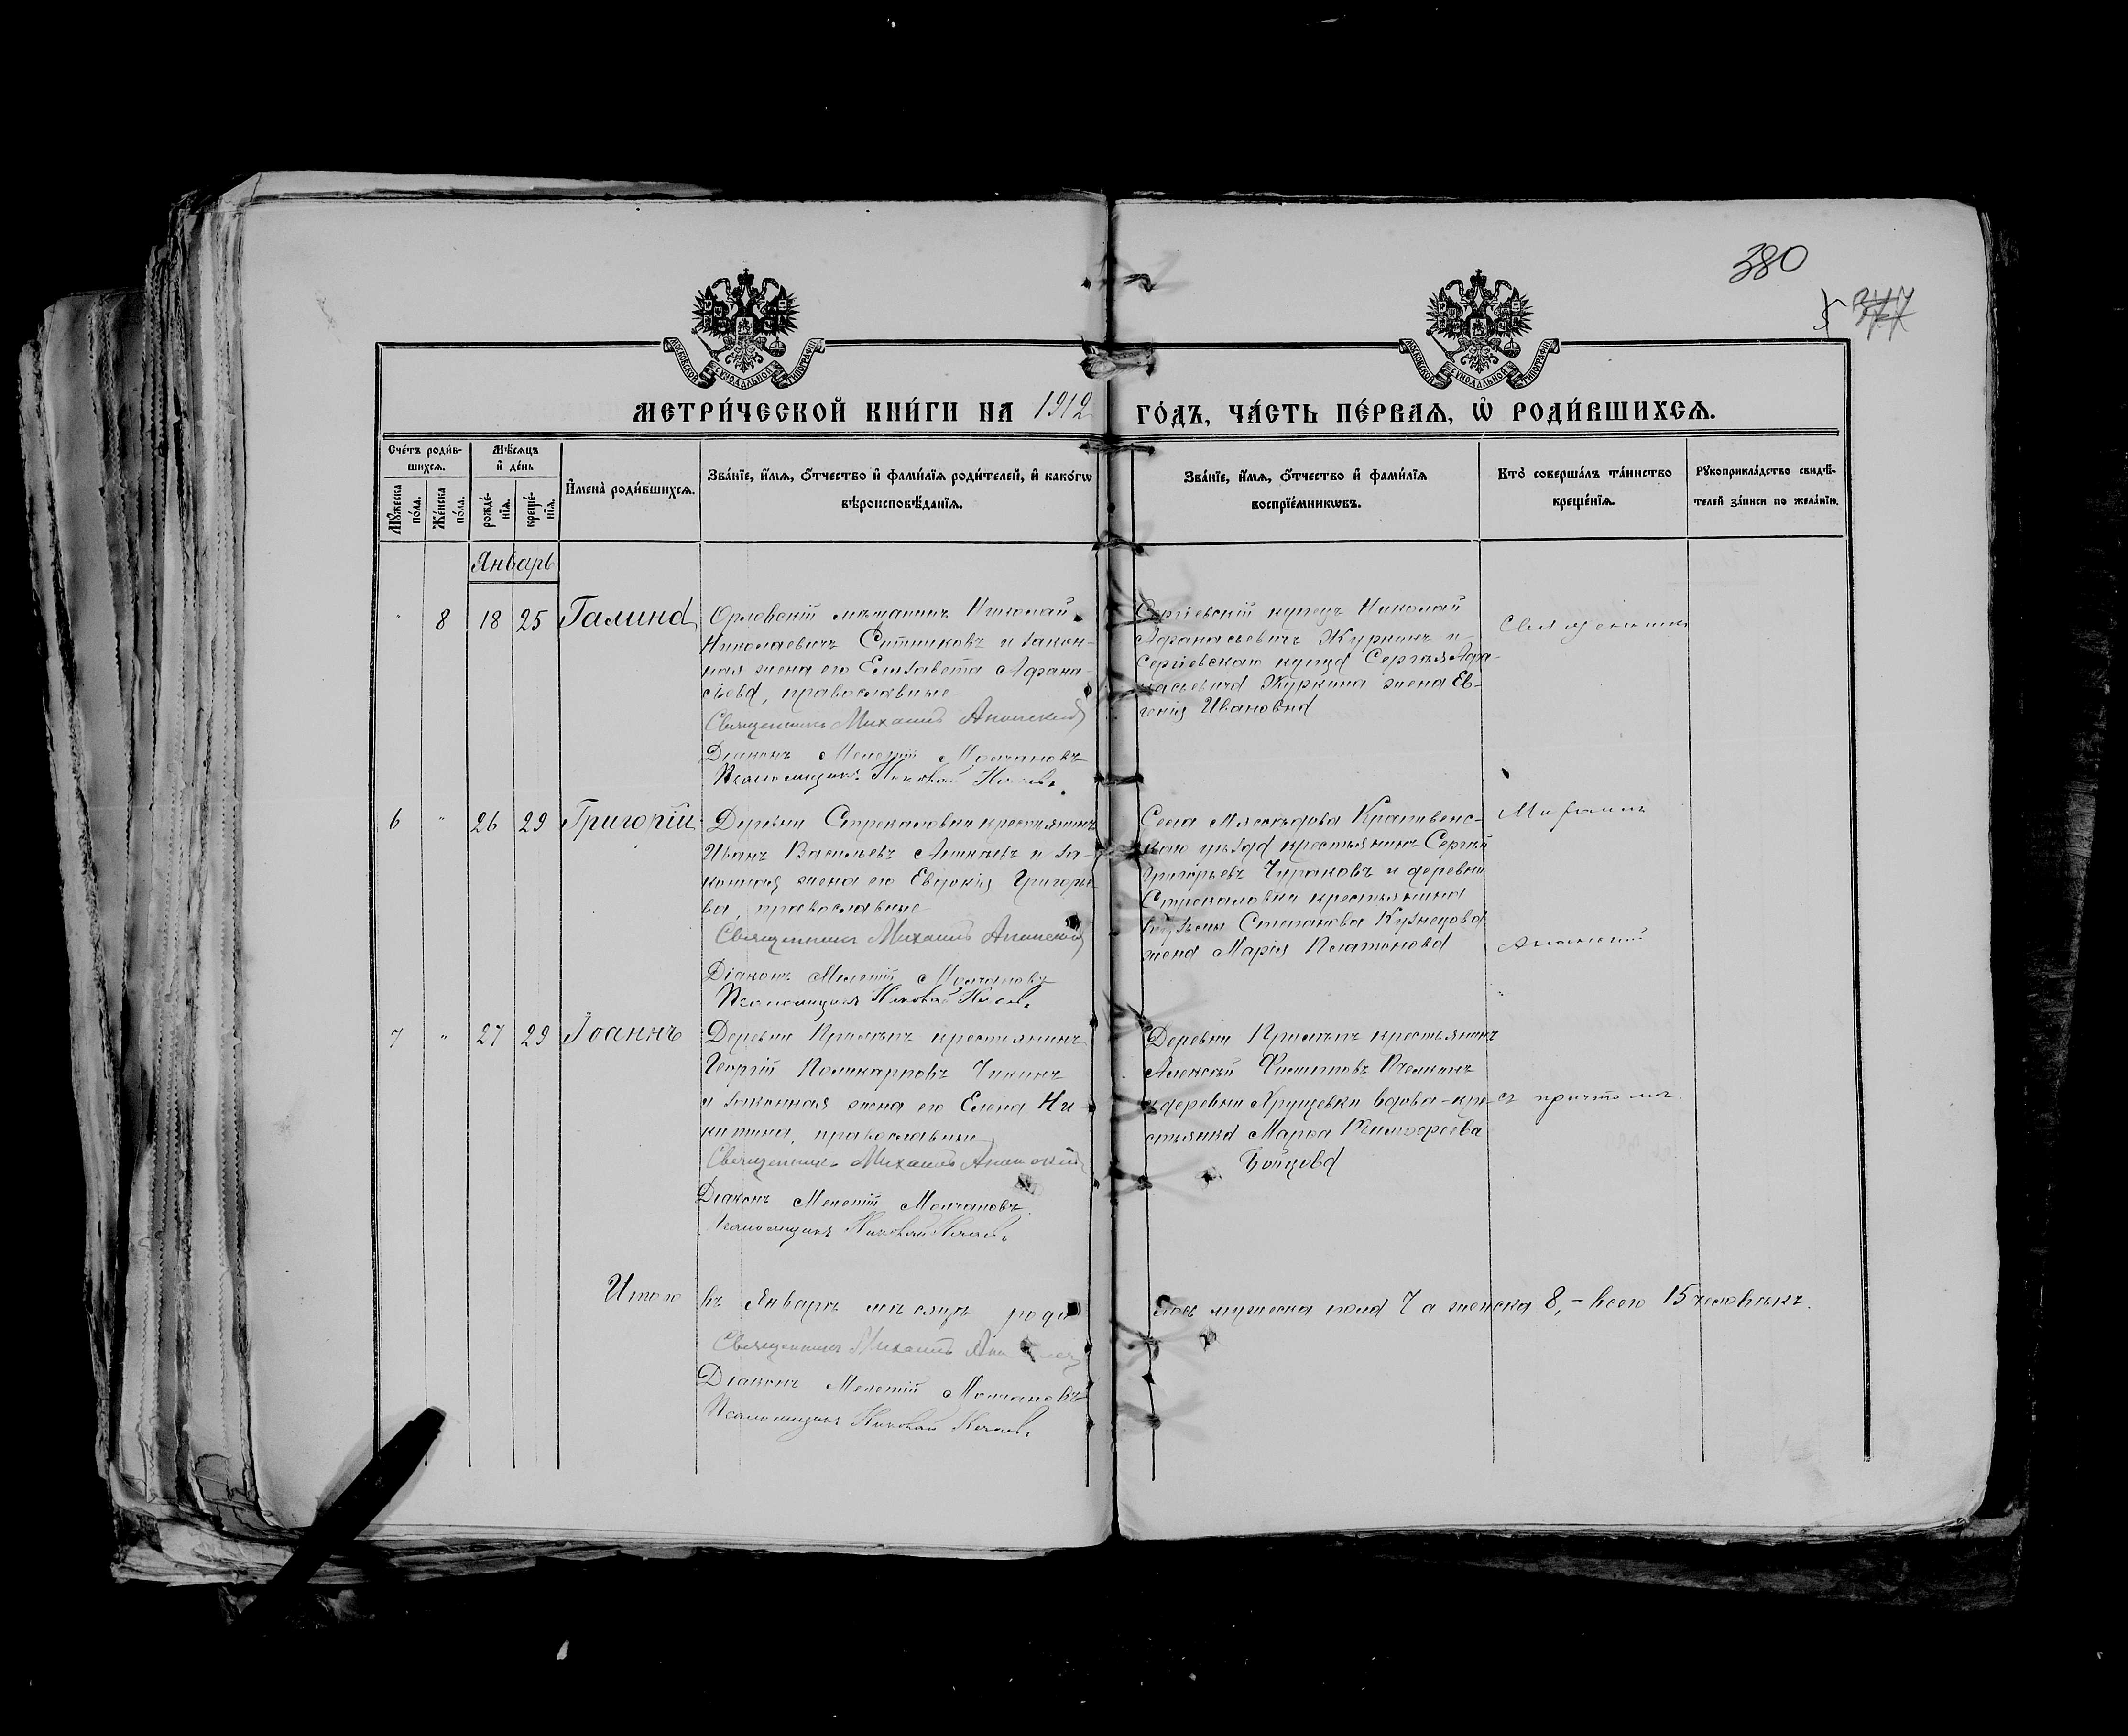 380
377
МОСКОВСКОЙ СѴНОДАЛЬНОЙ ТИПОГРАФІИ
МОСКОВСКОЙ СѴНОДАЛЬНОЙ ТИПОГРАФІИ
МЕТРИ́ЧЕСКОЙ КНИ́ГИ НА 1912 ГО́ДЪ, ЧА́СТЬ ПЕ́РВАЯ, Ѡ҆ РОДИ́ВШИХСЯ.
Сче́тъ роди́в-
шихся.
Мꙋ́жеска по́ла.
Же́нска по́ла.
Мѣ́сяцъ
и҆ де́нь
рожде́-
нїя.
креще́-
нїя.
И҆мена̀ роди́вшихся.
Зва́нїе, и҆́мя, ѻ҆́тчество и҆ фами́лїя роди́телей, и҆ како́гѡ
вѣроисповѣ́данїя.
Зва́нїе, и҆́мя, ѻ҆́тчество и҆ фами́лїя
воспрїе́мникѡвъ.
Кто̀ соверша́лъ та́инство
креще́нїя.
Рꙋкоприкла́дство свидѣ́-
телей за́писи по жела́нїю.
Январь
" 8 18 25 Галина
Орловскій мѣщанинъ Николай
Николаевичъ Ситниковъ и закон-
ная жена его Елизавета Афана-
сьева, православные
Священникъ Михаилъ
Діаконъ Мелетій Молчановъ
Псаломщикъ Николай
Сергіевскій купецъ Николай
Афанасьевичъ Журкинъ и
Сергіевскаго купца Сергѣя Афа-
насьевича Журкина жена Ев-
генія Ивановна
Священникъ
6 " 26 29 Григорій
Деревни Стрекаловки крестьянинъ
Иванъ Васильевъ и за-
конная жена его Евдокія Григорье-
ва, православные
Священникъ Михаилъ
Діаконъ Мелетій Молчановъ
Псаломщикъ Николай
Села Мясоѣдова Крапивенс-
каго уѣзда крестьянинъ Сергѣй
Григорьевъ Чураковъ и деревни
Стрекаловки крестьянина
Кузьмы Степанова Кузнецова
жена Марія Платонова
Михаилъ
7 " 27 29 Іоаннъ
Деревни Прилѣпъ крестьянинъ
Георгій Поликарповъ Чикинъ
и законная жена его Елена Ни-
китина, православные
Священникъ Михаилъ
Діаконъ Мелетій Молчановъ.
Псаломщикъ Николай
Деревни Прилѣпъ крестьянинъ
Алексѣй Филиповъ Пчелкинъ
и деревни Хрущевки вдова-кре-
стьянка Марѳа Тимоѳеева
Бойцова
съ причтомъ.
Итого въ Январѣ мѣсяцѣ роди лось мужеска пола 7 а женска 8, – всего 15 человѣкъ.
Священникъ Михаилъ
Діаконъ Мелетій Молчановъ
Псаломщикъ Николай